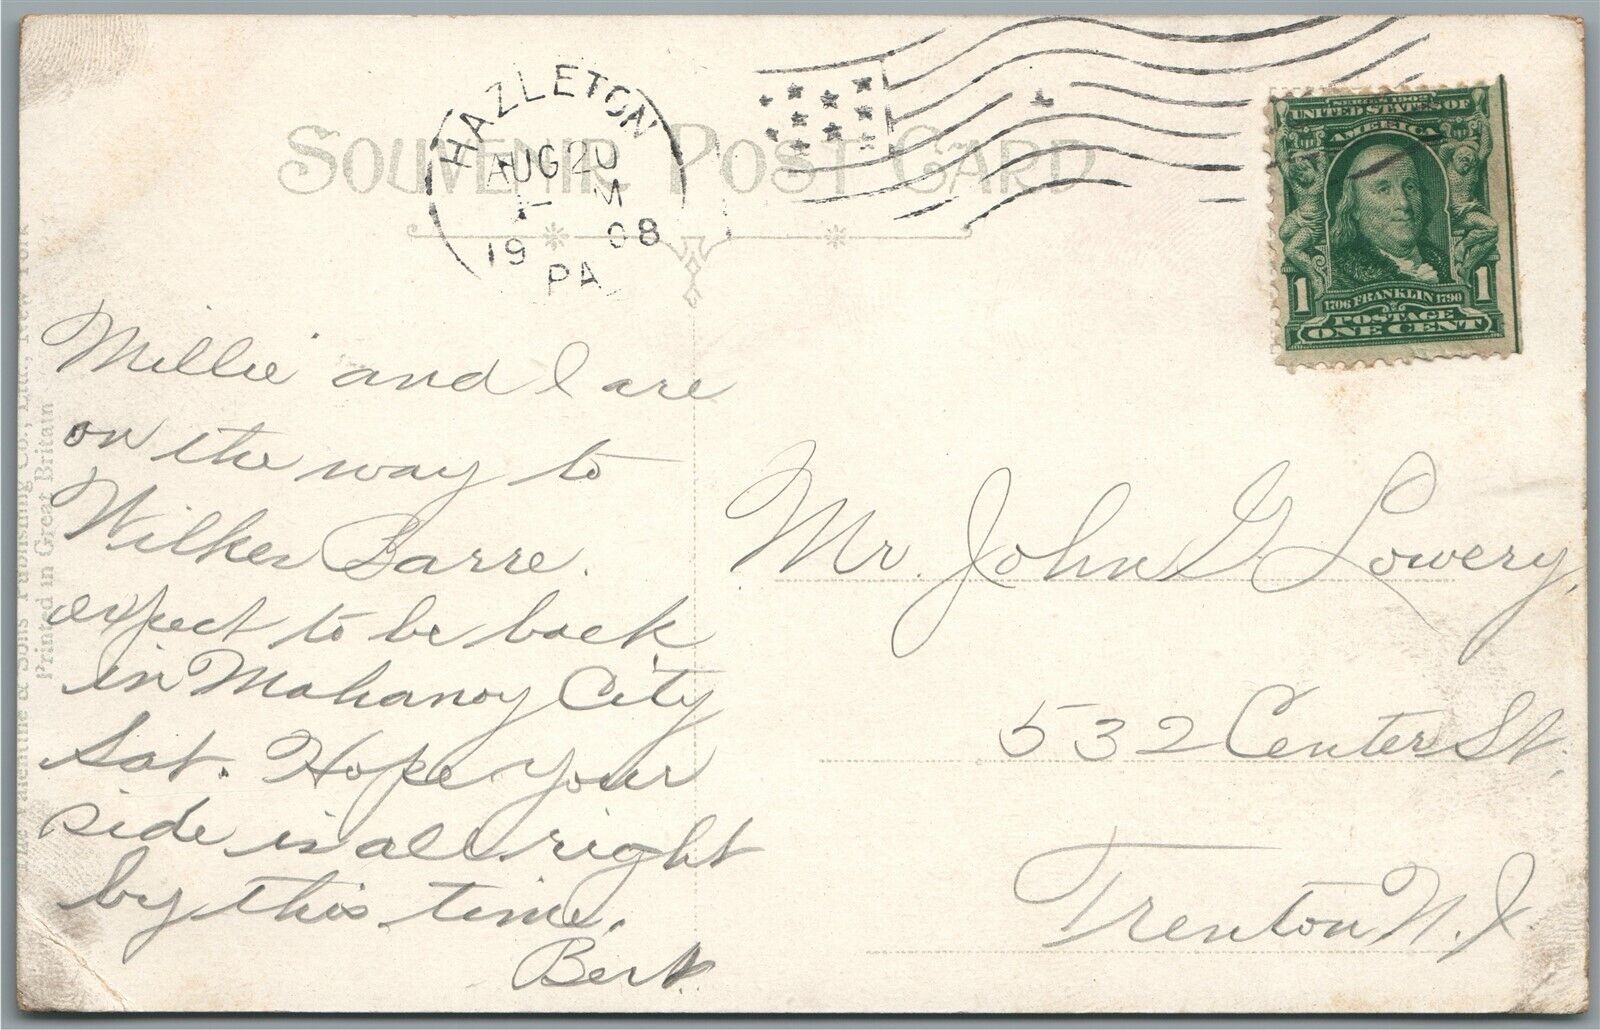 SOUVENIR POST CARD
HAZLETON
AUG 20
M
1908
PA
SERIES 1902
UNITED STATES OF
AMERICA
1 1
1706 FRANKLIN 1790
POSTAGE
ONE CENT
Millie and I are
on the way to
Wilkes Barre.
expect to be back
in Mahanoy City
Sat. Hope your
side is all right
by this time.
Bert
Mr. John G Lowery,
532 Center St.
Trenton N. J.
& Sons Publishing Co., Ltd., New York
Printed in Great Britain